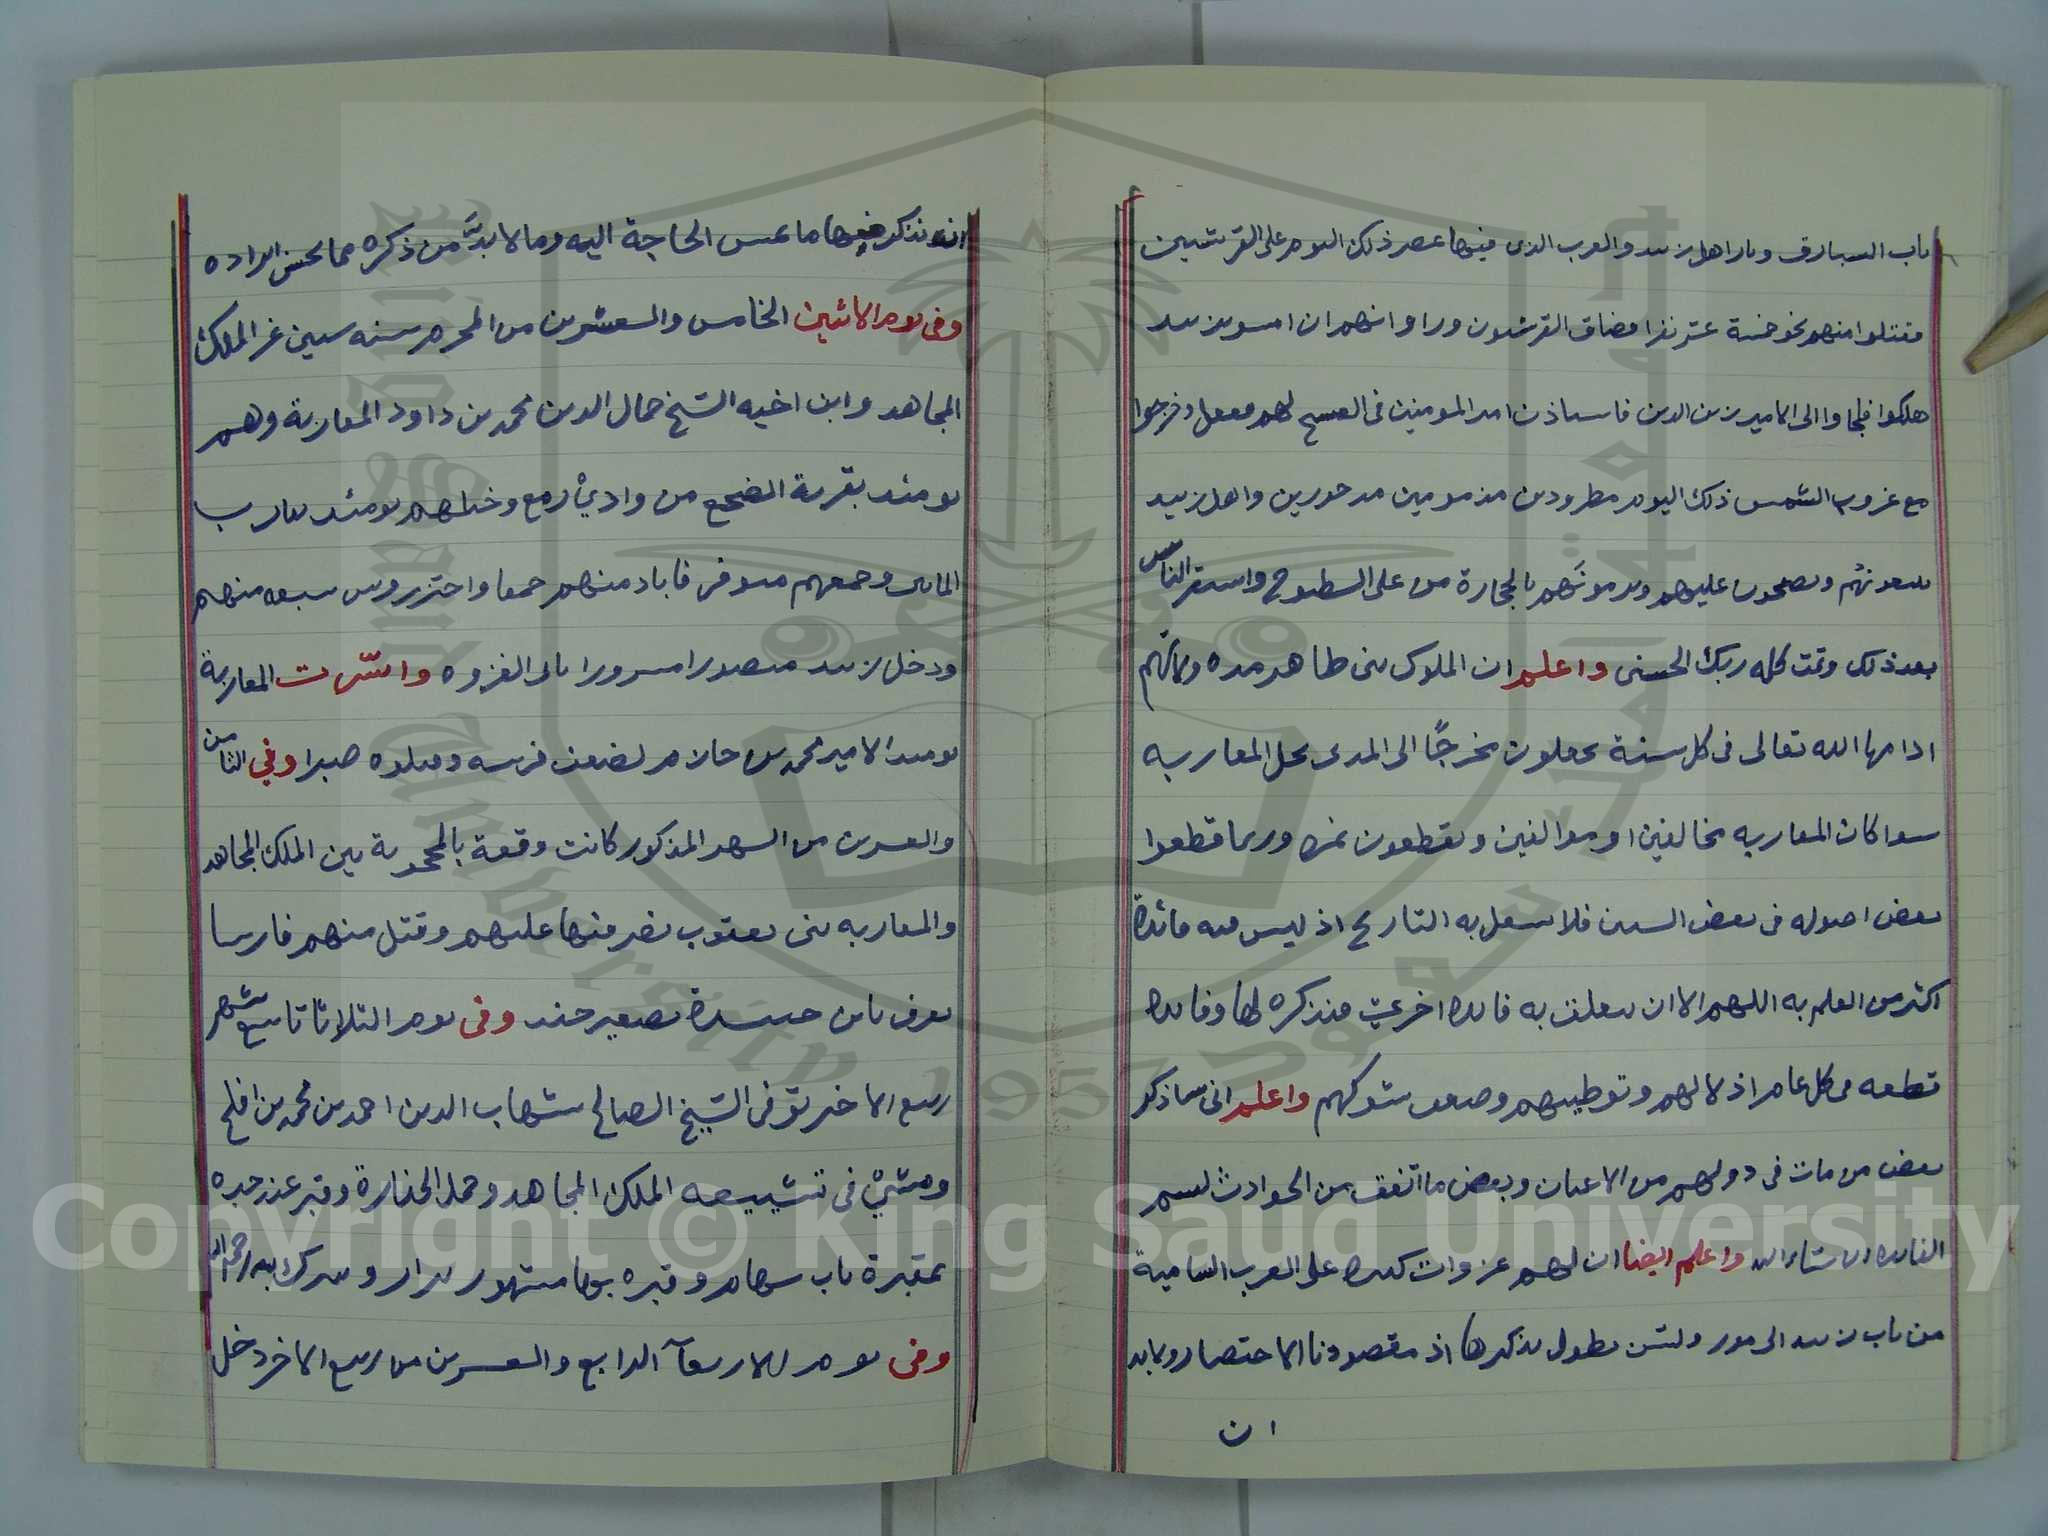 باب السبارق وبار اهل زبيد والعرب الذى فيها عصر ذلك اليوم على القرشيين
فقتلوا منهم نحو خمسة عشر نفرا فضاق القرشيون وراوا انهم ان امسوا بزبيد
هلكوا فلجاوا الى الامير زين الدين فاستاذن امير المومنين فى الفسح لهم ففعل وخرجوا
مع غروب الشمس ذلك اليوم مطرودين مذمومين مدحورين واهل زبيد
يتبعونهم ويصيحون عليهم ويرمونهم بالحجارة من على السطوح واستقر الناس
بعد ذلك وتمت كلمه ربك الحسنى واعلم ان الملوك بنى طاهر مده ولايتهم
ادامها الله تعالى فى كل سنة يجعلون مخرجًا الى المدى نخل المعازبه
سوا كان المعازبه مخالفين او موالفين ويقطعون ثمره وربما قطعوا
بعض اصوله فى بعض السنين فلا نبطل به التاريخ اذ ليس فيه فائدة
اكثر من العلم به اللهم الا ان يتعلق به فايده اخرى فنذكره لها وفايده
قطعه فى كل عام اذلالهم وتوطيهم وضعف شوكتهم واعلم انى ساذكر
بعض من مات فى دولتهم من الاعيان وبعض ما اتفق من الحوادث لتتم
الفايده ان شاء الله واعلم ايضا ان لهم غزوات كثيره على العرب الشامية
من باب زبيد الى مور ولئن نطول بذكرها اذ مقصودنا الاختصار ولابد
ان
ان نذكر فيها ما تمس الحاجة اليه وما لا بدَّ من ذكره مما يحسن ايراده
وفى يوم الاثنين الخامس والعشرين من المحرم سنه ستين غز الملك
المجاهد وابن اخيه الشيخ جمال الدين محمد بن داود المعازبة وهم
يومئذ بقرية الضجع من وادي رمع وخيلهم يومئذ تقارب
المايتى وجمعهم متوفر فاباد منهم جمعا واحتز روس سبعه منهم
ودخل زبيد منصورا مسرورا بالى الغزوه واسرت المعازبة
يومئذ الامير محمد بن حازم لضعف فرسه وقتلوه صبرا وفي الثامن
والعشرين من الشهر المذكور كانت وقعة بالمحجرية بين الملك المجاهد
والمعازبه بنى يعقوب نصر فيها عليهم وقتل منهم فارسا
يعرف بابن حنيدة تصغير حند وفى يوم الثلاثا تاسع شهر
ربيع الاخر توفى الشيخ الصالح شهاب الدين احمد بن محمد بن افلح
ومشي فى تشييعه الملك المجاهد وحمل الجنازة وقبر عند جده
بمقبرة باب سهام وقبره بها مشهور يزار ويتبرك به رحمه الله
وفى يوم الاربعآ الرابع والعشرين من ربيع الاخر دخل